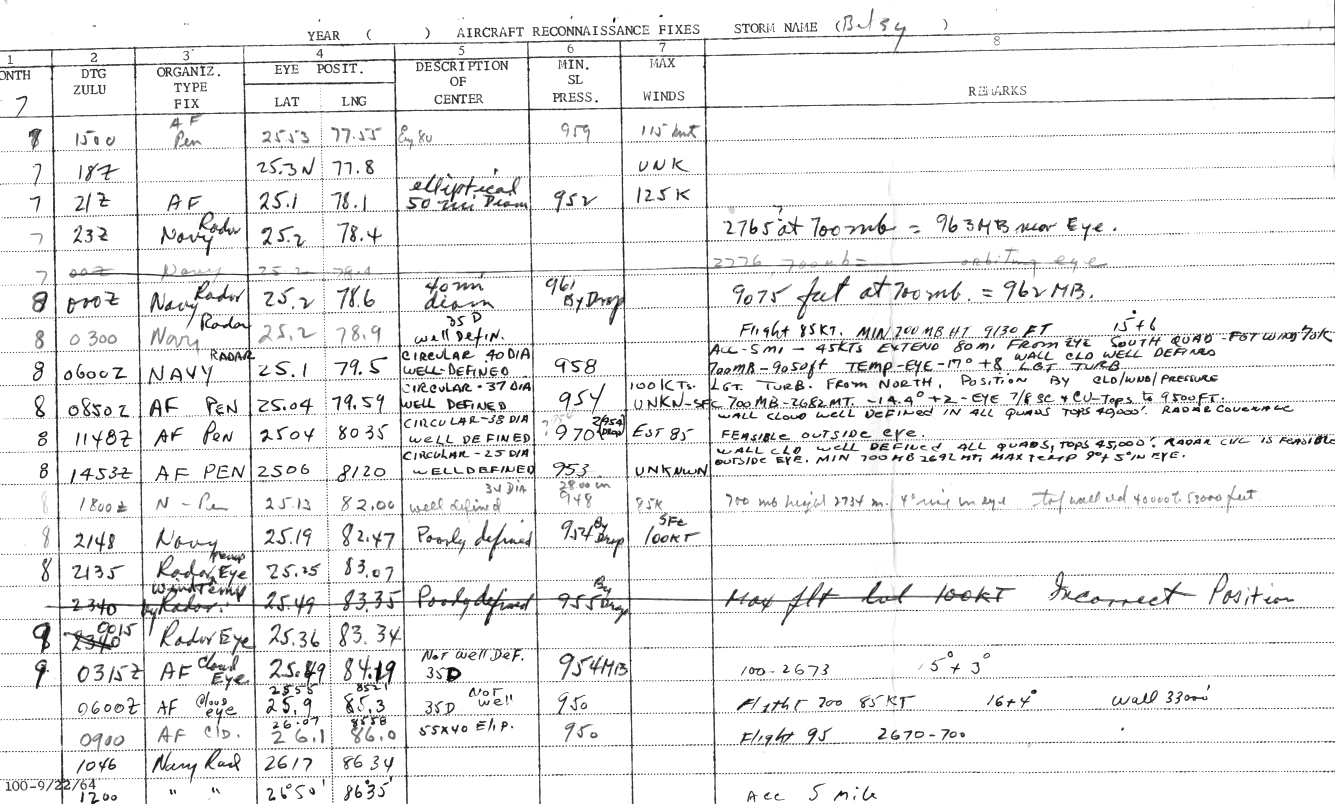 YEAR ( ) AIRCRAFT RECONNAISSANCE FIXES STORM NAME (Betsy )
1 2 3 4 5 6 7 8
ONTH DTG ZULU ORGANIZ. TYPE FIX EYE POSIT. LAT LNG DESCRIPTION OF CENTER MIN. SL PRESS. MAX WINDS REMARKS
7
8 1500 AF Pen 25.53 77.55 959 115 knt
7 18Z 25.3N 77.8 UNK
7 21Z AF 25.1 78.1 elliptical 50 mi Diam 952 125K
7 23Z Navy Radar 25.2 78.4 2765 ? at 700mb = 963MB near Eye.
7 00Z Navy 25.2 78.4 2776, 700mb = orbiting eye
8 0000Z Navy Radar 25.2 78.6 40 mi diam 961 By Drop 9075 feet at 700mb. = 962 MB.
8 0300 Navy Radar 25.2 78.9 35 D well Defin. Flight 85KT. MIN 700MB HT 9130 FT 15°+6
8 0600Z NAVY RADAR 25.1 79.5 CIRCULAR 40 DIA WELL-DEFINED 958 ACC-5mi - 45KTS EXTEND 80mi FROM EYE SOUTH QUAD - FGT WIND 70K
700MB-9050ft TEMP-EYE-17° +8 WALL CLD WELL DEFINED LGT TURB
8 0850Z AF PEN 25.04 79.59 CIRCULAR-37 DIA WELL DEFINED 954 100KTS. UNKN-SFC LGT. TURB. FROM NORTH, POSITION BY CLD/WND/PRESSURE
700 MB-2682 MT. -14.4°+2 - EYE 7/8 SC & CU-TOPS to 9500FT.
8 1148Z AF PEN 2504 8035 CIRCULAR-38 DIA WELL DEFINED 970 (954 DROP) EST 85 WALL CLOUD WELL DEFINED IN ALL QUADS TOPS 40,000'. RADAR COVERAGE
FEASIBLE OUTSIDE eye.
8 1453Z AF PEN 2506 8120 CIRCULAR-25 DIA WELL DEFINED 953 UNKNWN WALL CLD WELL DEFINED ALL QUADS, TOPS 45,000'. RADAR CVC IS FEASIBLE
OUTSIDE EYE. MIN 700 MB 2692 MT, MAX TEMP 9°+5° IN EYE.
8 1800Z N - Pen 25.13 82.00 34 DIA well defined 28.00 in 948 85K 700 mb height 2734 m. 4° rise in eye top wall cld 40000 to 53000 feet.
8 2148 Navy 25.19 82.47 Poorly defined 954 By Drop SFC 100KT
8 2135 Radar Eye 25.25 83.07
2340 Wind Temp by Radar. 25.49 83.35 Poorly defined 955 By Drop Max flt lvl 100KT Incorrect Position
9 0015 2340 Radar Eye 25.36 83.34
9 0315Z AF Cloud Eye 25.49 84.19 Not Well DEF. 35D 954MB 100-2673 15°+3°
0600Z AF Cloud eye 2555 25.9 8521 85.3 35D Not well 950 Flight 700 85KT 16+4° Wall 33000'
0900 AF C/D. 26.07 26.1 8558 86.0 55X40 Elip. 950 Flight 95 2670-700
1046 Navy Rad 2617 8634
100-9/22/64
1200 " " 26°50' 86°35' Acc 5 mile